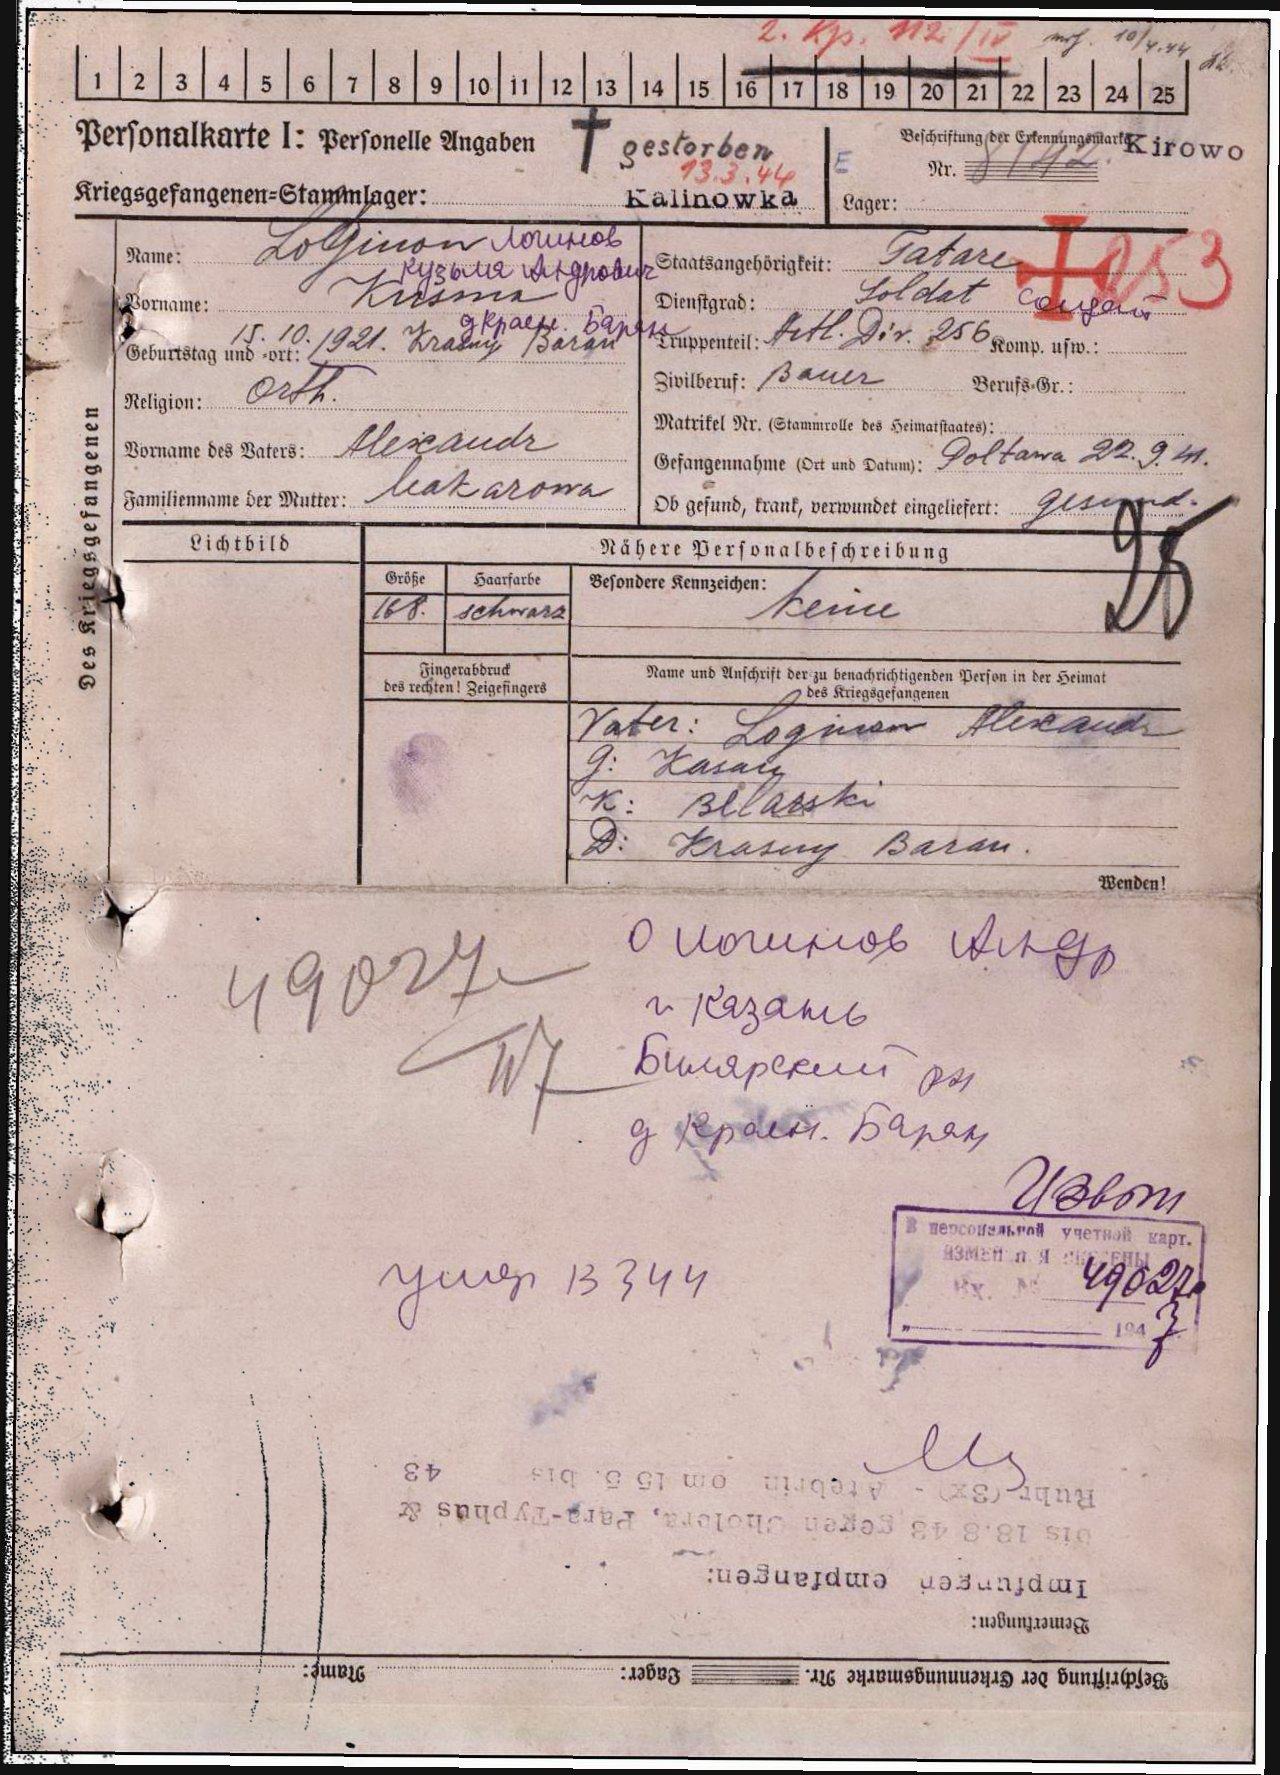 2. Kp. 112/IV 10/4.44
1 2 3 4 5 6 7 8 9 10 11 12 13 14 15 16 17 18 19 20 21 22 23 24 25
Personalkarte I: Personelle Angaben
† gestorben
13.3.44
Beschriftung der Erkennungsmarke Kirowo
E
Nr.
Kriegsgefangenen-Stammlager: Kalinowka
Lager:
Des Kriegsgefangenen
Name: Loginow Логинов
Кузьма Андрович
Vorname: Kusma
д Красн. Баран
Geburtstag und -ort: 15.10.1921. Krasny Baran
Religion: Orth.
Vorname des Vaters: Alexandr
Familienname der Mutter: Makarowa
Staatsangehörigkeit: Tatare
253
Dienstgrad: Soldat Солдат
Truppenteil: Artl. Div. 256 Komp. usw.:
Zivilberuf: Bauer Berufs-Gr.:
Matrikel Nr. (Stammrolle des Heimatstaates):
Gefangennahme (Ort und Datum): Poltawa 22.9.41.
Ob gesund, krank, verwundet eingeliefert: gesund.
25
Lichtbild
Nähere Personalbeschreibung
Größe
168.
Haarfarbe
schwarz
Besondere Kennzeichen:
keine
Fingerabdruck
des rechten! Zeigefingers
Name und Anschrift der zu benachrichtigenden Person in der Heimat
des Kriegsgefangenen
Vater: Loginow Alexandr
G: Kasan
K: Bilarski
D: Krasny Baran.
Wenden!
49027
О Логинов Андр
г Казань
Билярский рн
д Красн. Баран
Извещ
В персональной учетной карт.
Вх. № 49027
" 1947
умер 13 3 44
43
Ruhr (3x) - Atebrin vom 15 5. bis
bis 18.8 43 gegen Cholera, Para-Typhus &
Impfungen empfangen:
Bemerkungen:
Beschriftung der Erkennungsmarke Nr. Lager: Name: